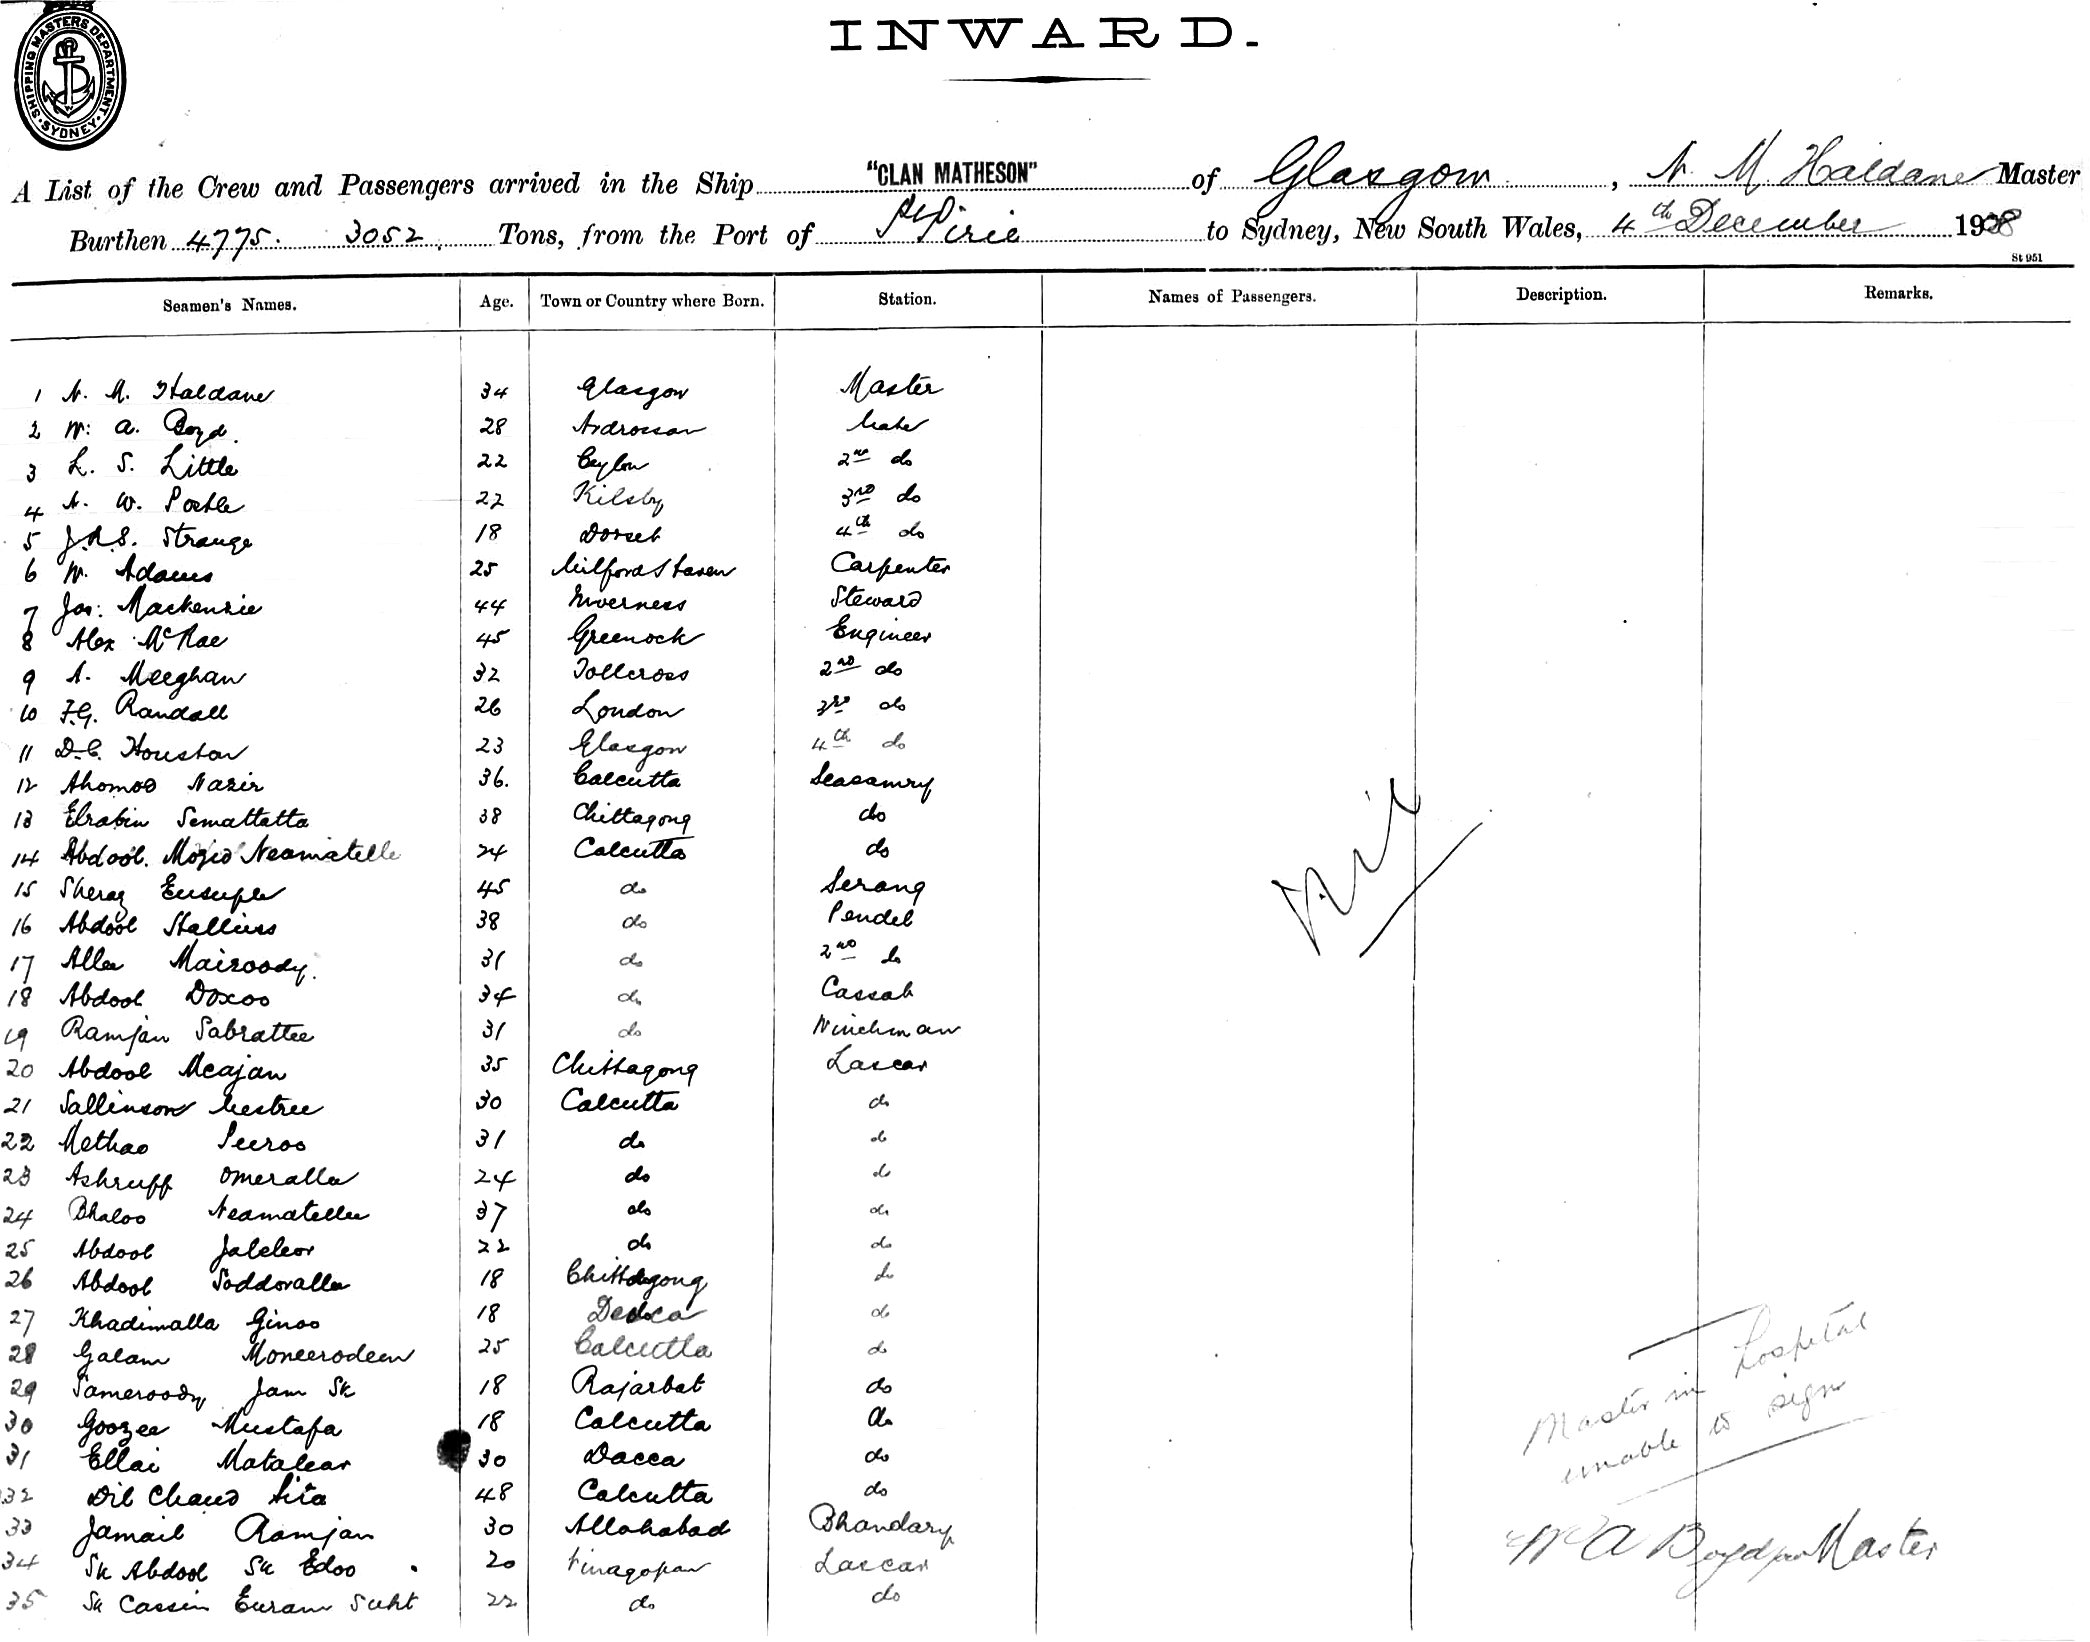 SHIPPING MASTERS DEPARTMENT. SYDNEY.
INWARD.
A List of the Crew and Passengers arrived in the Ship "CLAN MATHESON" of Glasgow, A. M. Haldane Master
Burthen 4775. 3052. Tons, from the Port of Pt Pirie to Sydney, New South Wales, 4th December 1908
St 951
Seamen's Names. Age. Town or Country where Born. Station. Names of Passengers. Description. Remarks.
1 A. M. Haldane 34 Glasgow Master
2 W. A. Boyd. 28 Ardrossan Mate
3 L. S. Little 22 Ceylon 2nd do
4 A. W. Postle 22 Kilsby 3rd do
5 J.R.S. Strange 18 Dorset 4th do
6 W. Adams 25 Milford Haven Carpenter
7 Jas: Mackenzie 44 Inverness Steward
8 Alex McRae 45 Greenock Engineer
9 A. Meeghan 32 Tollcross 2nd do
10 F.G. Randall 26 London 3rd do
11 D.C. Houston 23 Glasgow 4th do
12 Ahomod Nazir 36. Calcutta
13 Elrabin Semattatta 38 Chittagong do
14 Abdool. Mozid Neamatelle 24 Calcutta do
15 Sheraz Eusuple 45 do Serang
16 Abdool 38 do Pendel
17 Allee Mairoody. 31 do 2nd do
18 Abdool Doxoo 34 do Cassab
19 Ramjan Sabrattee 31 do Winchman
20 Abdool Meajan 35 Chittagong Lascar
21 Sallinson Mestree 30 Calcutta do
22 Methao Peeroo 31 do do
23 Ashruff Omeralla 24 do do
24 Bhaloo Neamatellee 37 do do
25 Abdool 22 do do
26 Abdool Soddoralla 18 Chittagong do
27 Khadimalla Ginoo 18 do
28 Galam Moneerodeen 25 Calcutta do
29 Sameroody Jam Sk 18 Rajarbat do
30 Goozee Mustafa 18 Calcutta do
31 Ellai Matalear 30 Dacca do
32 Dil Chand Sita 48 Calcutta do
33 Jamail Ramjan 30 Allahabad Bhandary
34 Sk Abdool Sk Edoo 20 Lascar
35 Sk Cassim Euram Sukt 22 do do
Nil
Master in Hospital
unable to sign
W A Boyd for Master